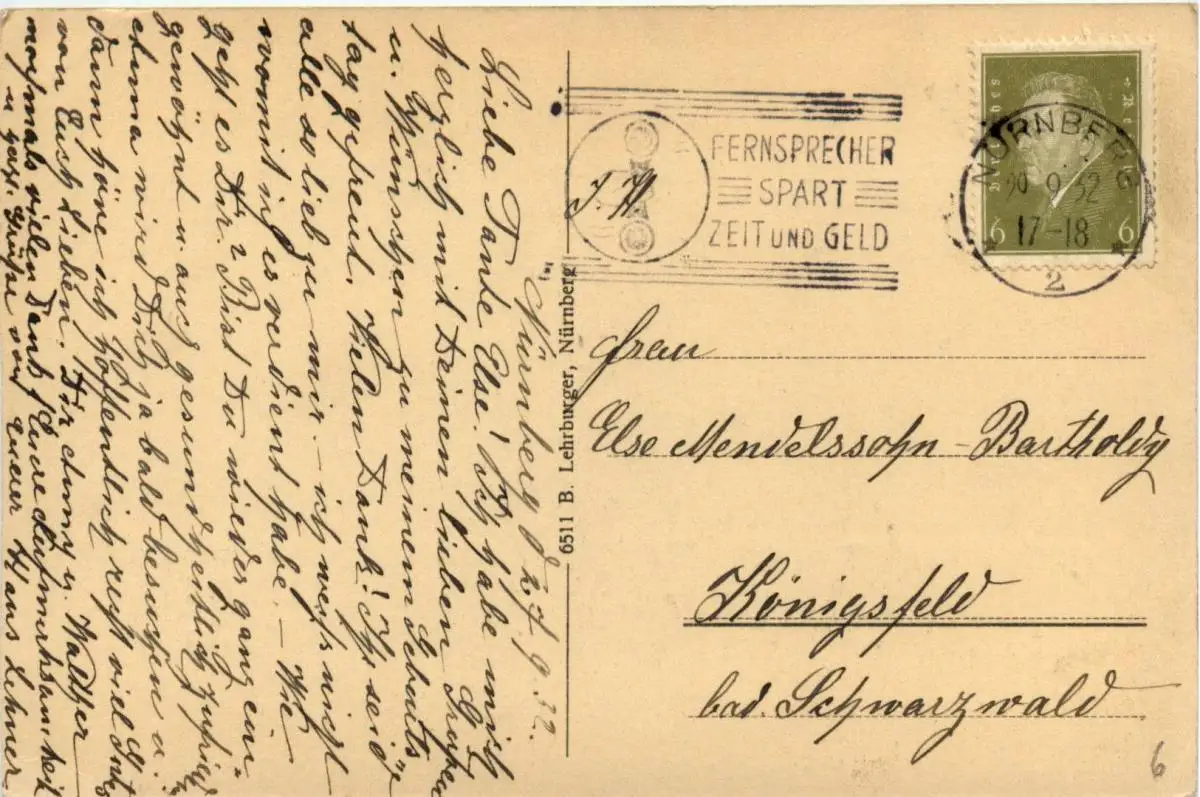 Nürnberg d 27. 9. 32.
Liebe Tante Else! Ich habe mich
herzlich mit Deinen lieben Grüßen
u. Wünschen zu meinem Geburts
tag gefreut. Vielen Dank! Ihr seid
alle so lieb zu mir – ich weiß nicht
womit ich es verdient habe. – Wie
geht es Dir? Bist Du wieder ganz ein-
gewöhnt u. auch gesundheitlich zufrieden
Anna wird Dich ja bald besuchen u.
dann höre ich hoffentlich recht viel Gutes
von Euch Lieben. Dir, u. Walther
nochmals vielen Dank f. Eure Aufmerksamkeit
u. herzl. Grüße von Euerer Hans Lehner
6511 B. Lehrburger, Nürnberg
FERNSPRECHER
SPART
ZEIT UND GELD
T. H.
NÜRNBERG
9.32
17-18
2
6 6
Frau
Else Mendelssohn-Bartholdy
Königsfeld
bad. Schwarzwald
6